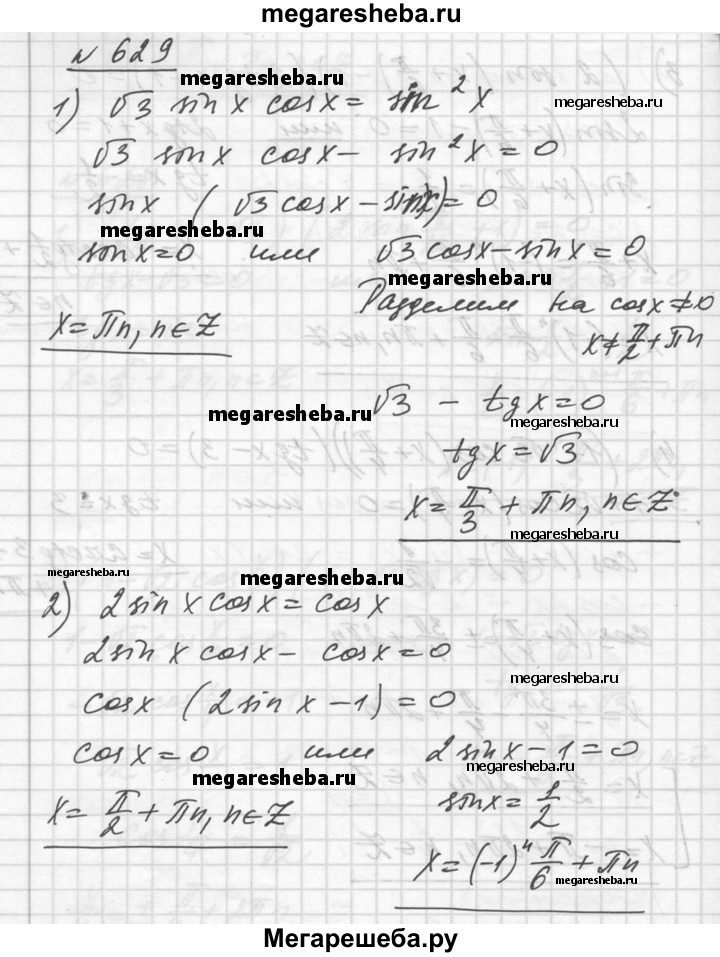 megaresheba.ru
№ 629
megaresheba.ru
1) √3 sin x cos x = sin²x
megaresheba.ru
√3 sin x cos x − sin²x = 0
sin x (√3 cos x − sin x) = 0
megaresheba.ru
sin x = 0 или √3 cos x − sin x = 0
megaresheba.ru
Разделим на cos x ≠ 0
x = πn, n ∈ Z
x ≠ π/2 + πn
megaresheba.ru
√3 − tg x = 0
megaresheba.ru
tg x = √3
x = π/3 + πn, n ∈ Z
megaresheba.ru
megaresheba.ru
megaresheba.ru
2) 2 sin x cos x = cos x
2 sin x cos x − cos x = 0
megaresheba.ru
cos x (2 sin x − 1) = 0
cos x = 0 или 2 sin x − 1 = 0
megaresheba.ru
megaresheba.ru
sin x = 1/2
x = π/2 + πn, n ∈ Z
x = (−1)ⁿ π/6 + πn
megaresheba.ru
Мегарешеба.ру